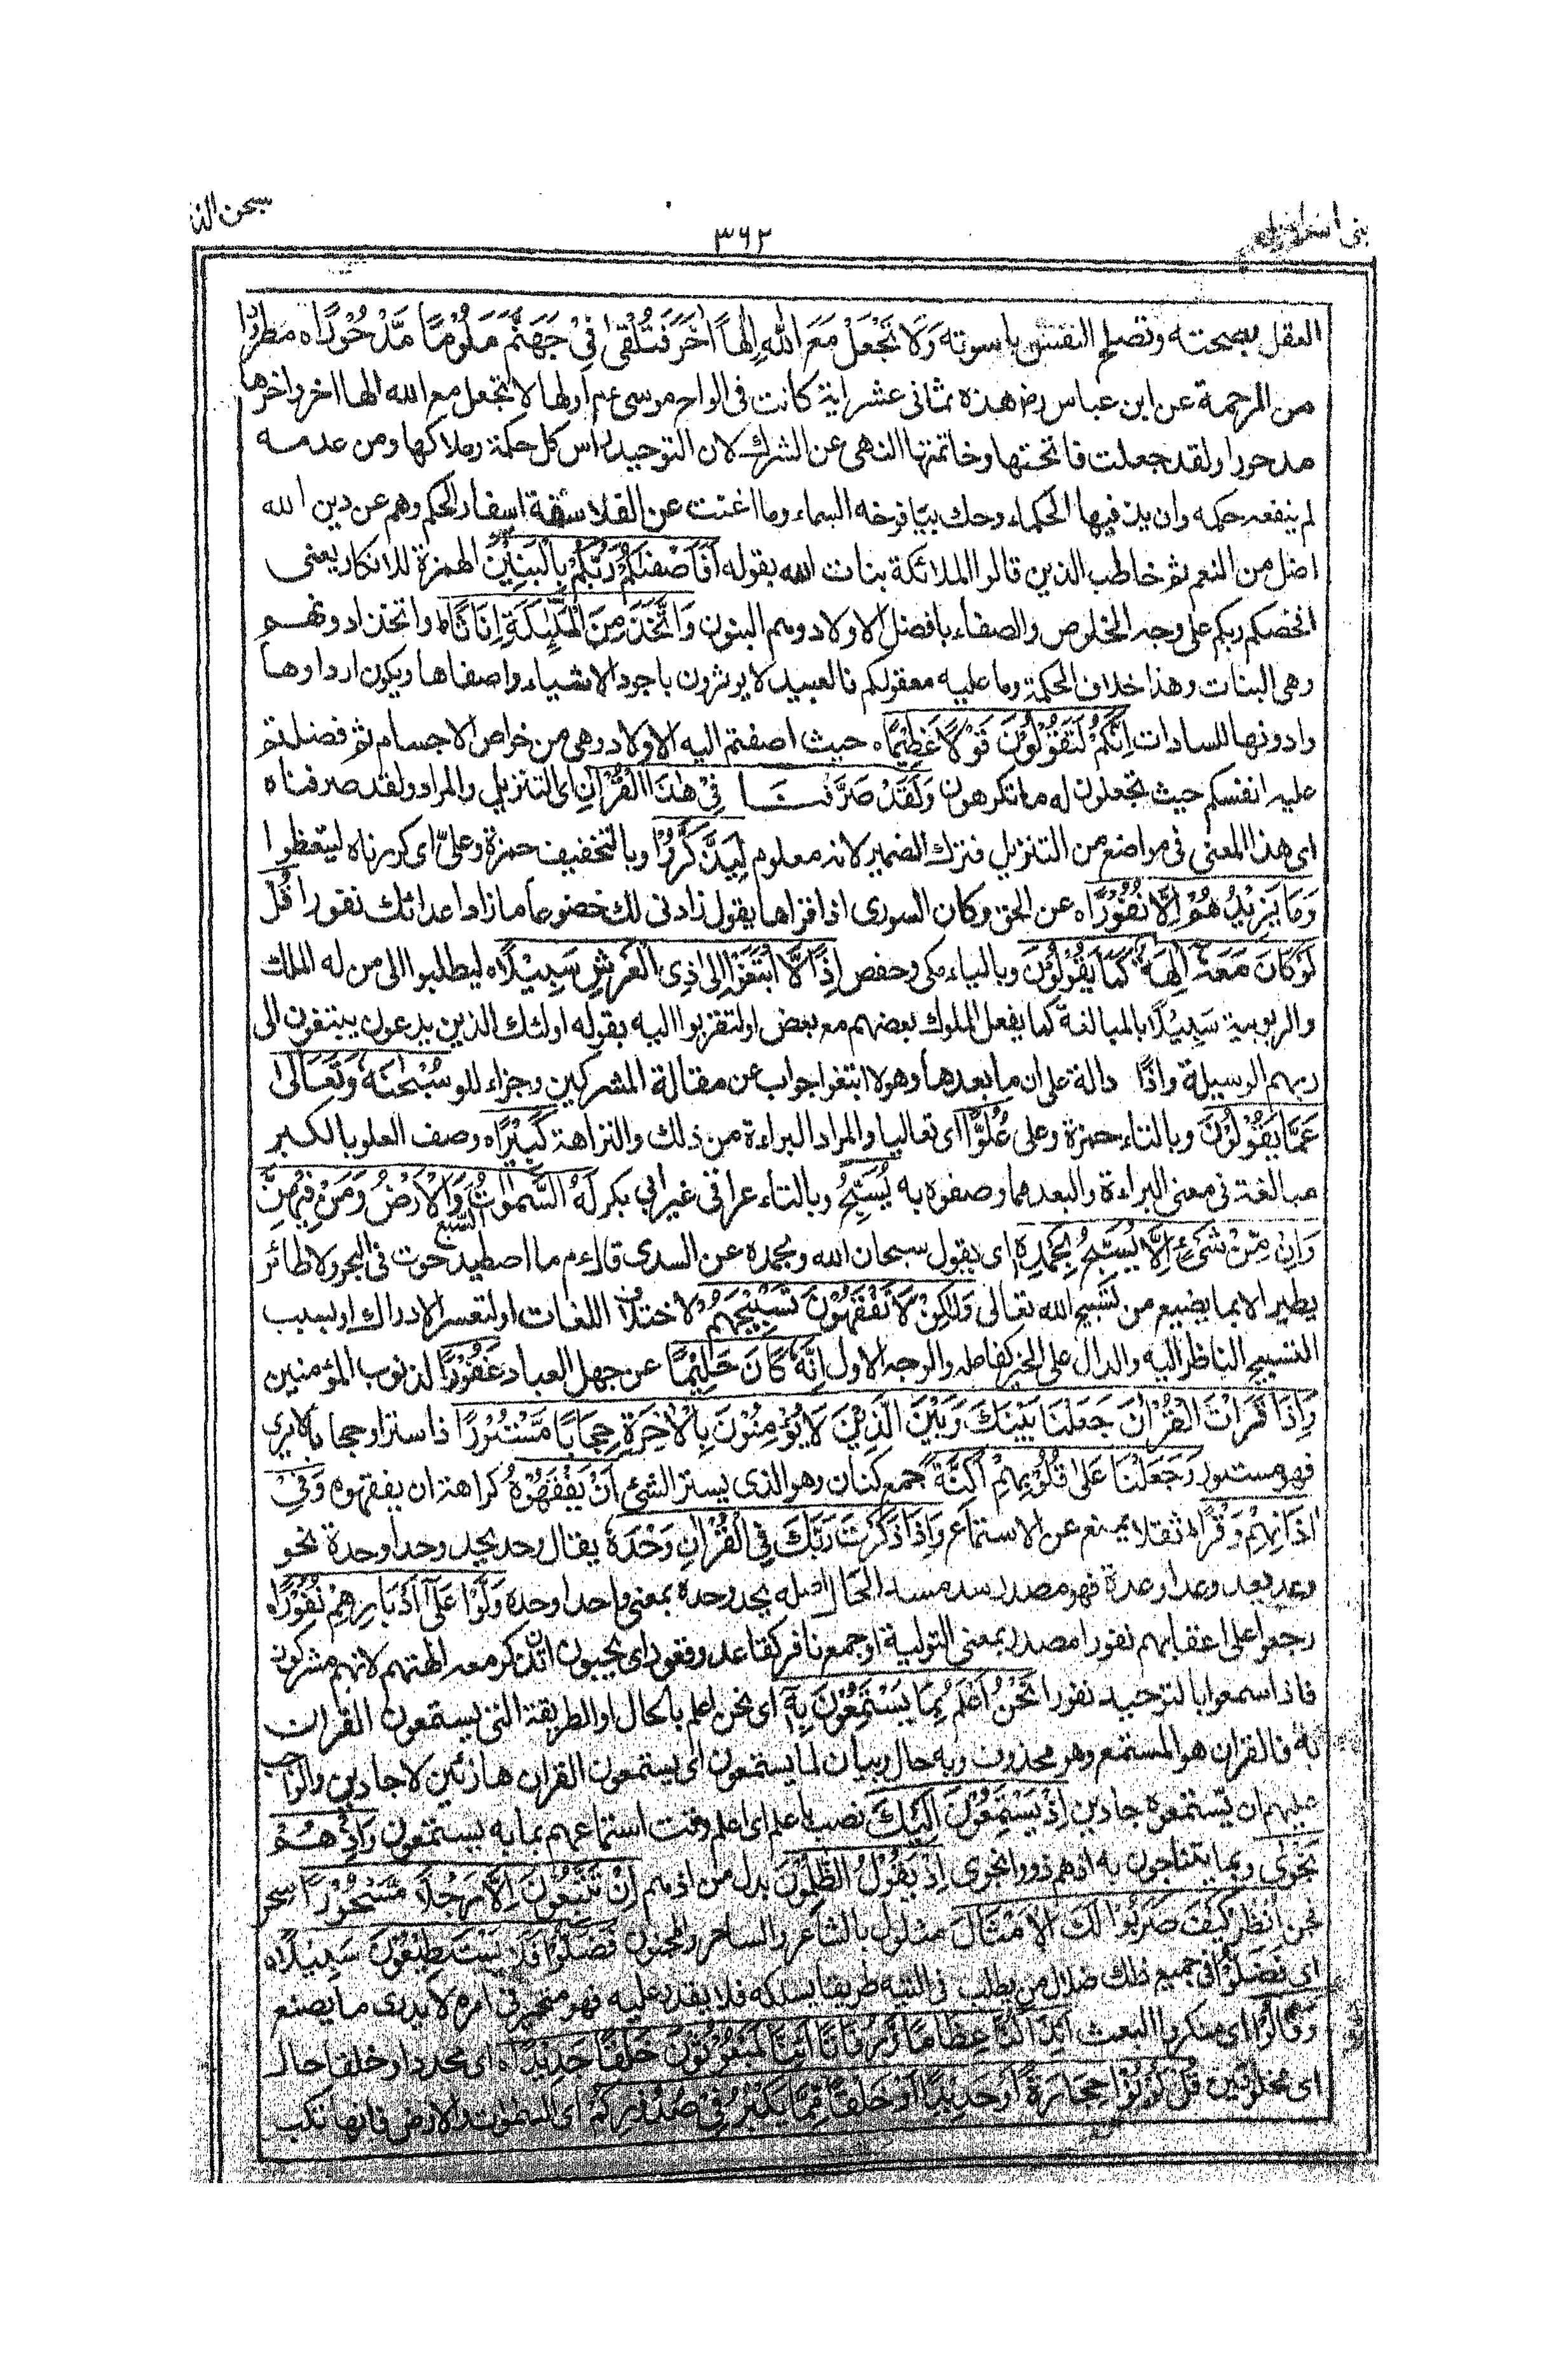 بنى اسراءيل
٣٦٢
سبحن الذ
العقل بصحته وتصلح النفس باسوته وَلَا تَجْعَلْ مَعَ اللّٰهِ اِلٰهًا اٰخَرَ فَتُلْقٰى فِيْ جَهَنَّمَ مَلُوْمًا مَّدْحُوْرًا ه مطرودا
من الرحمة عن ابن عباس رض هذه ثمانى عشر اية كانت فى الواح موسى عم اولها لا تجعل مع الله الها اخر واخرها
مدحورا ولقد جعلت فاتحتها وخاتمتها النهى عن الشرك لان التوحيد راس كل حكمة وملاكها ومن عدمه
لم ينفعه حكمه وان بذ فيها الحكماء وحك بيافوخه السماء وما اغنت عن الفلاسفة اسفار الحكم وهم عن دين الله
اضل من النعم ثم خاطب الذين قالوا الملائكة بنات الله بقوله اَفَاَصْفٰىكُمْ رَبُّكُمْ بِالْبَنِيْنَ الهمزة للانكار يعنى
افخصكم ربكم على وجه الخلوص والصفاء بافضل الاولاد وهم البنون وَاتَّخَذَ مِنَ الْمَلٰٓئِكَةِ اِنَاثًا ط واتخذ ادونهم
وهى البنات وهذا خلاف الحكمة وما عليه معقولكم فالعبيد لا يوثرون باجود الاشياء واصفاها ويكون اردأوها
وادونها للسادات اِنَّكُمْ لَتَقُوْلُوْنَ قَوْلًا عَظِيْمًا ه حيث اضفتم اليه الاولاد وهى من خواص الاجسام ثم فضلتم
عليه انفسكم حيث تجعلون له ما تكرهون وَلَقَدْ صَرَّفْنَا فِيْ هٰذَا الْقُرْاٰنِ اى التنزيل والمراد ولقد صرفناه
اى هذا المعنى فى مواضع من التنزيل فترك الضمير لانه معلوم لِيَذَّكَّرُوْا وبالتخفيف حمزة وعلىّ اى كررناه ليتعظوا
وَمَا يَزِيْدُهُمْ اِلَّا نُفُوْرًا ه عن الحق وكان السورى اذا قراها يقول زادنى لك خضوعا ما زاد اعدائك نفورا قُلْ
لَوْ كَانَ مَعَهٗٓ اٰلِهَةٌ كَمَا يَقُوْلُوْنَ وبالياء مكى وحفص اِذًا لَّابْتَغَوْا اِلٰى ذِى الْعَرْشِ سَبِيْلًا ه ليطلبوا الى من له الملك
والربوبية سَبِيْلًا بالمبالغة كما يفعل الملوك بعضهم مع بعض اولتقربوا اليه بقوله اولئك الذين يدعون يبتغون الى
ربهم الوسيلة واذًا دالة على ان ما بعدها وهو لابتغوا جواب عن مقالة المشركين وجزاء للو سُبْحٰنَهٗ وَتَعٰلٰى
عَمَّا يَقُوْلُوْنَ وبالتاء حمزة وعلى عُلُوًّا اى تعاليا والمراد البراءة من ذلك والنزاهة كَبِيْرًا ه وصف العلو بالكبر
مبالغة فى معنى البراءة والبعد مما وصفوه به تُسَبِّحُ وبالتاء عراقى غير ابي بكر لَهُ السَّمٰوٰتُ السَّبْعُ وَالْاَرْضُ وَمَنْ فِيْهِنَّ
وَاِنْ مِّنْ شَىْءٍ اِلَّا يُسَبِّحُ بِحَمْدِهٖ اى يقول سبحان الله وبحمده عن السدى قال ءم ما اصطيد حوت فى البحر ولا طائر
يطير الا بما يضيع من تسبيح الله تعالى وَلٰكِنْ لَّا تَفْقَهُوْنَ تَسْبِيْحَهُمْ لاختلاف اللغات اولتعسر الادراك اوبسبب
التسبيح الناظر اليه والدال على الخير كفاعله والوجه الاول اِنَّهٗ كَانَ حَلِيْمًا عن جهل العباد غَفُوْرًا لذنوب المؤمنين
وَاِذَا قَرَاْتَ الْقُرْاٰنَ جَعَلْنَا بَيْنَكَ وَبَيْنَ الَّذِيْنَ لَا يُؤْمِنُوْنَ بِالْاٰخِرَةِ حِجَابًا مَّسْتُوْرًا ذا ستر او حجابا لا يرى
فهو مستور وَجَعَلْنَا عَلٰى قُلُوْبِهِمْ اَكِنَّةً جمع كنان وهو الذى يستر الشئ اَنْ يَفْقَهُوْهُ كراهة ان يفقهوه وَفِيْ
اٰذَانِهِمْ وَقْرًا ه ثقلا يمنع عن الاستماع وَاِذَا ذَكَرْتَ رَبَّكَ فِى الْقُرْاٰنِ وَحْدَهٗ يقال وحد يحد وحدا وحدة نحو
وعد يعد وعدا وعدة فهو مصدر سد مسد الحال اصله يحد وحده بمعنى واحدا وحده وَلَّوْا عَلٰٓى اَدْبَارِهِمْ نُفُوْرًا ه
رجعوا على اعقابهم نفورا مصدر بمعنى التولية او جمع نافر كقاعد وقعود اى يحبون ان تذكر معه الهتهم لانهم مشركون
فاذا سمعوا بالتوحيد نفورا نَحْنُ اَعْلَمُ بِمَا يَسْتَمِعُوْنَ بِهٖٓ اى نحن اعلم بالحال او الطريقة التى يستمعون القران
به فالقران هو المستمع وهو محذوف وبه حال وبيان لما يستمعون اى يستمعون القران هازئين لا جادين والواجب
عليهم ان يستمعوه جادين اِذْ يَسْتَمِعُوْنَ اِلَيْكَ نصب باعلم اى اعلم وقت استماعهم بما به يستمعون وَاِذْ هُمْ
نَجْوٰى وبما يتناجون به اذ هم ذووا نجوى اِذْ يَقُوْلُ الظّٰلِمُوْنَ بدل من اذ هم اِنْ تَتَّبِعُوْنَ اِلَّا رَجُلًا مَّسْحُوْرًا سحر
فجن اُنْظُرْ كَيْفَ ضَرَبُوْا لَكَ الْاَمْثَالَ مثلوك بالشاعر والساحر والمجنون فَضَلُّوْا فَلَا يَسْتَطِيْعُوْنَ سَبِيْلًا ه
اى فَضَلُّوْا فى جميع ذلك ضلال من يطلب فى التيه طريقا يسلكه فلا يقدر عليه فهو متحير فى امره لا يدرى ما يصنع
وَقَالُوْا اى منكروا البعث ءَاِذَا كُنَّا عِظَامًا وَّرُفَاتًا ءَاِنَّا لَمَبْعُوْثُوْنَ خَلْقًا جَدِيْدًا ه اى مجددا وخلقا حال
اى مخلوقين قُلْ كُوْنُوْا حِجَارَةً اَوْ حَدِيْدًا اَوْ خَلْقًا مِّمَّا يَكْبُرُ فِيْ صُدُوْرِكُمْ اى السموات والارض فانها تكب